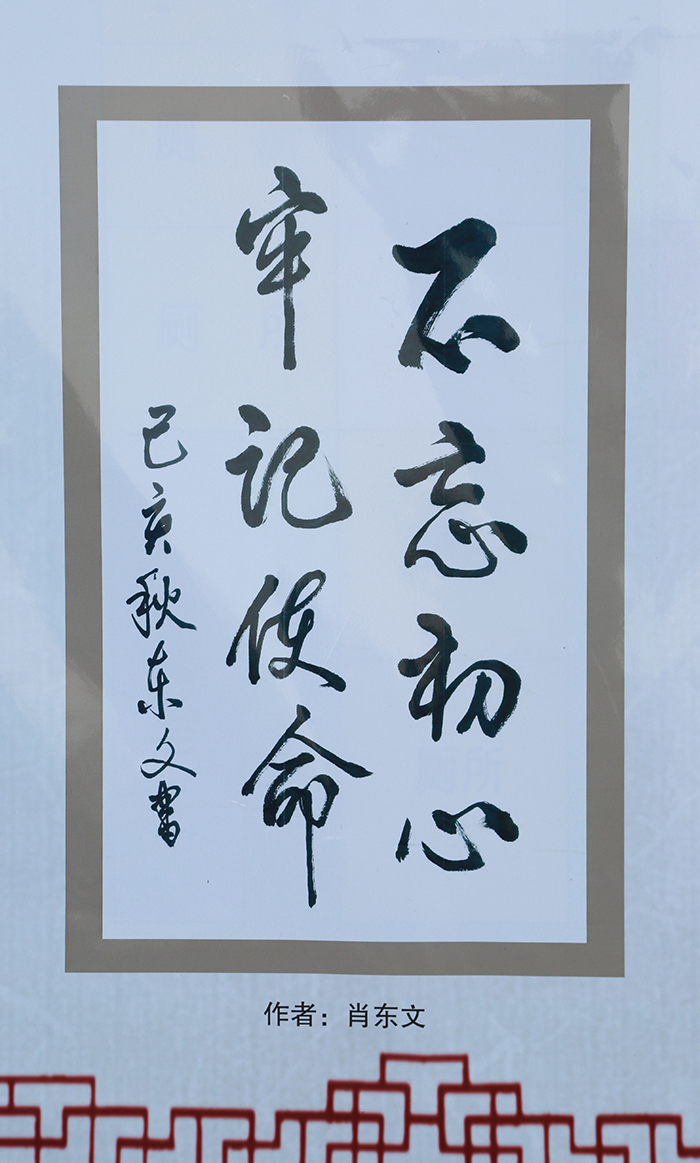 不忘初心
牢记使命
己亥秋东文书
作者：肖东文